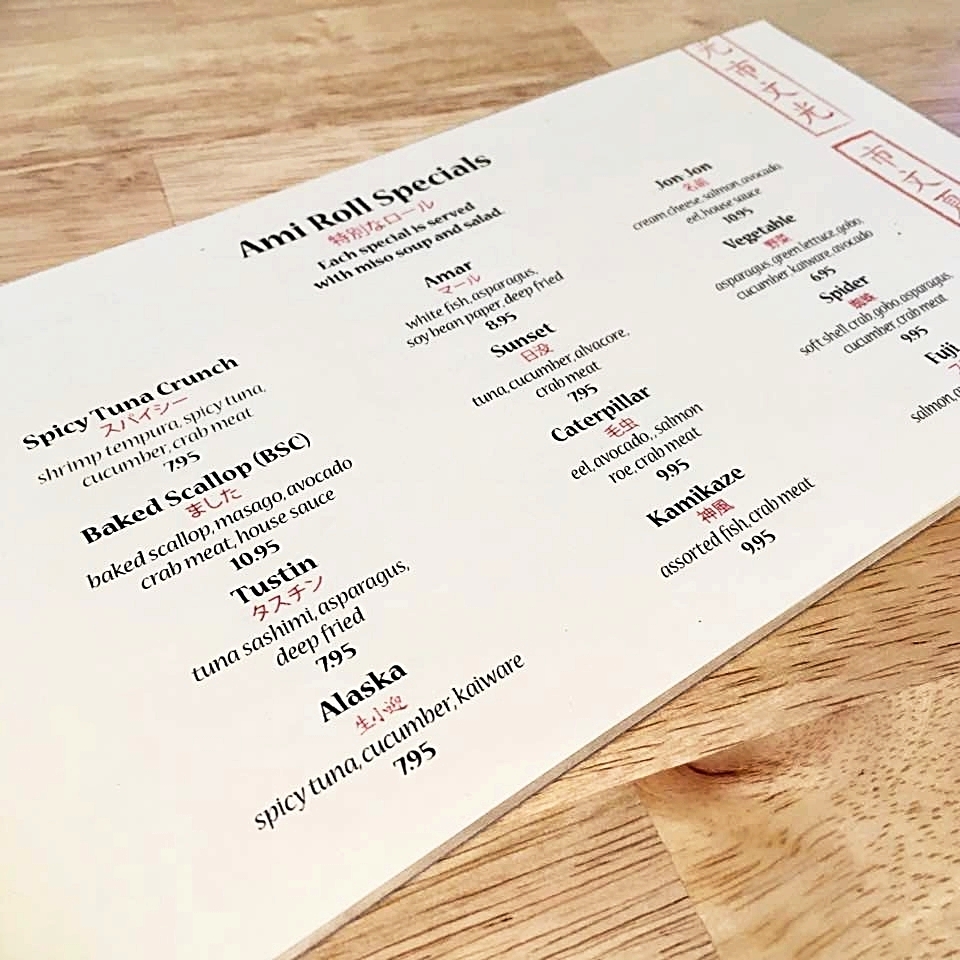 Ami Roll Specials
特別なロール
Each special is served
with miso soup and salad.
Spicy Tuna Crunch
スパイシー
shrimp tempura, spicy tuna,
cucumber, crab meat
7.95
Baked Scallop (BSC)
ました
baked scallop, masago, avocado
crab meat, house sauce
10.95
Tustin
タスチン
tuna sashimi, asparagus,
deep fried
7.95
Alaska
生小迎
spicy tuna, cucumber, kaiware
7.95
Amar
マール
white fish, asparagus,
soy bean paper, deep fried
8.95
Sunset
日没
tuna, cucumber, alvacore,
crab meat
7.95
Caterpillar
毛虫
eel, avocado, , salmon
roe, crab meat
9.95
Kamikaze
神風
assorted fish, crab meat
9.95
Jon Jon
名前
cream cheese, salmon, avocado
eel, house sauce
10.95
Vegetable
野菜
asparagus, green lettuce, gobo,
cucumber, kaiware, avocado
6.95
Spider
蜘蛛
soft shell crab, gobo, asparagus
cucumber, crab meat
9.95
Fuji
salmon,
市文光
市文